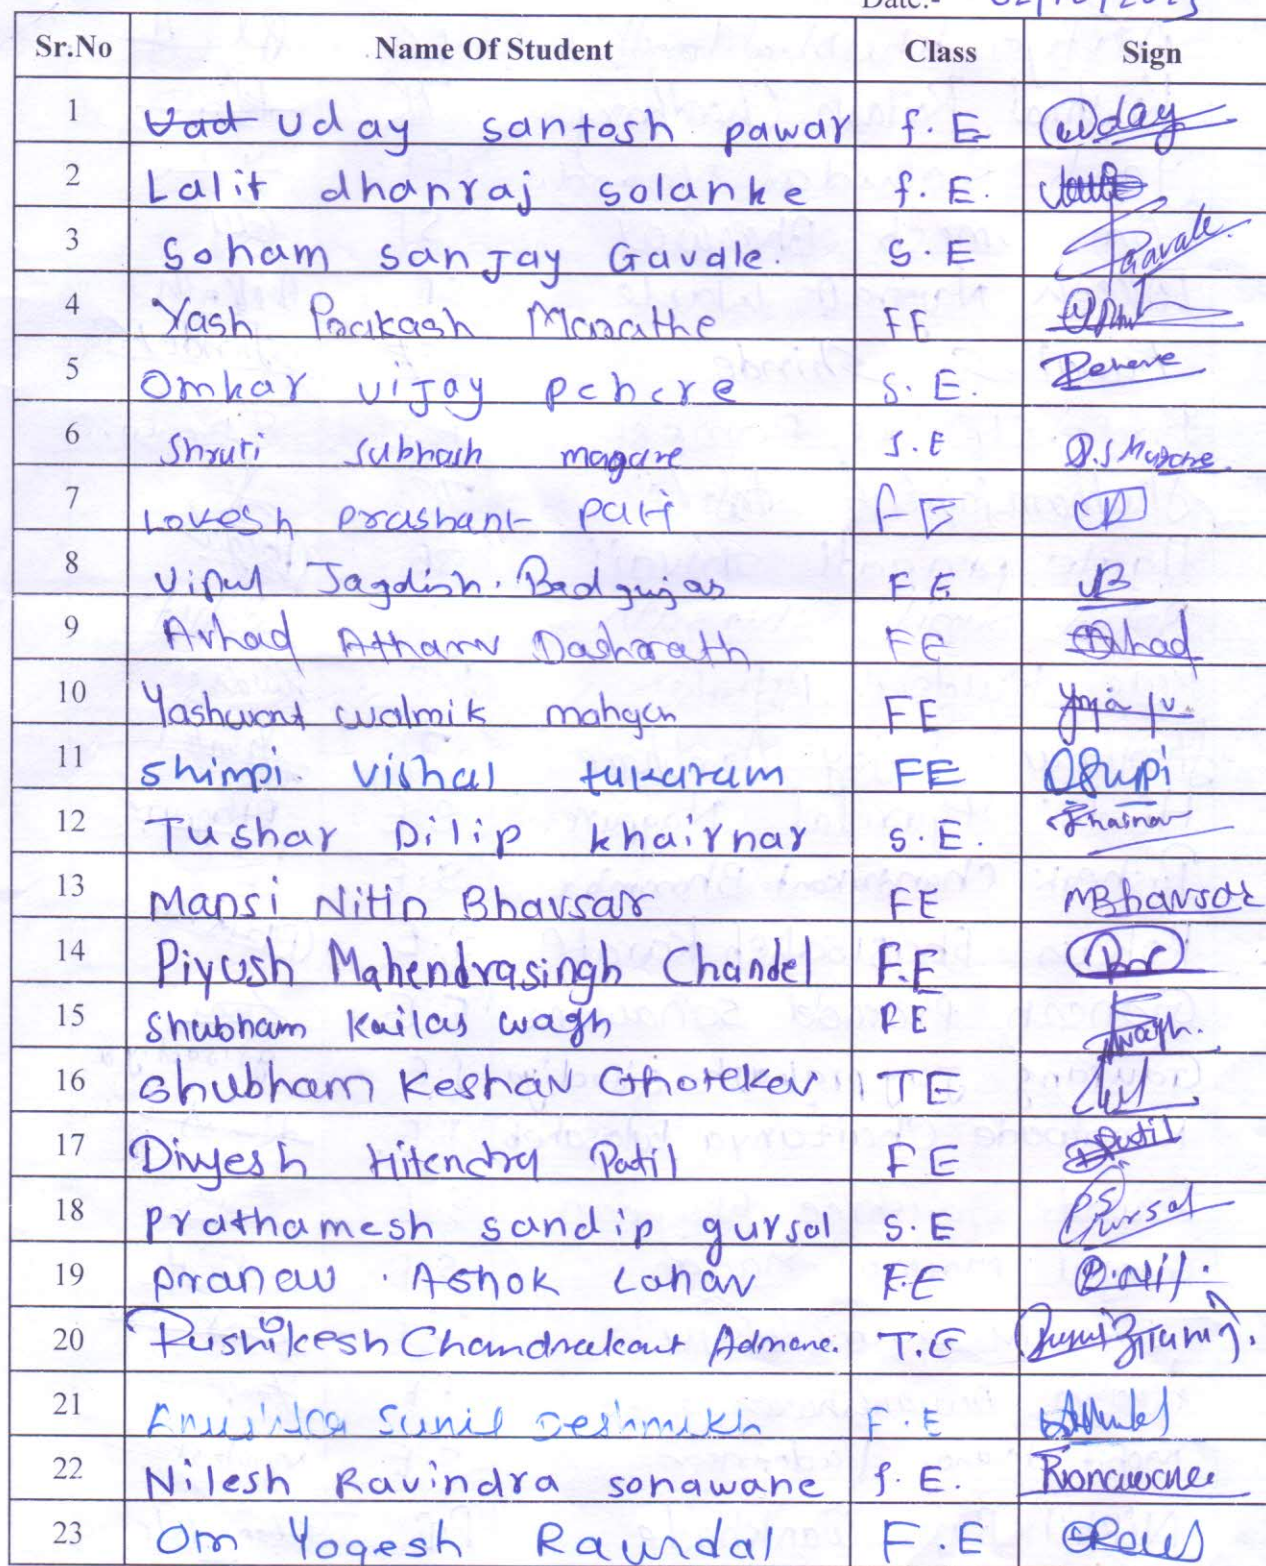 Date:- 02/10/2023
Sr.No Name Of Student Class Sign
1 Uday santosh pawar f.E Uday
2 Lalit dhanraj solanke f.E.
3 Soham sanjay Gavale. S.E Gavale.
4 Yash Prakash Marathe FE
5 Omkar vijay pehere S.E. Pehere
6 Shruti subhash magare S.E S.S Magare
7 Lovesh prashant pati FE
8 Vipul Jagdish. Badgujar FE VB
9 Avhad Atharv Dashrath FE Avhad
10 Yashwant walmik mahajan FE
11 shimpi. vishal tukaram FE
12 Tushar Dilip khairnar S.E. Khairnar
13 Mansi Nitin Bhavsar FE MBhavsar
14 Piyush Mahendrasingh Chandel F.E
15 Shubham Kailas wagh FE wagh.
16 Shubham Keshav Ghotekar TE
17 Divyesh Hitendra Patil FE Patil
18 Prathamesh sandip gursal S.E PSGursal
19 Pranav . Ashok Lahav F.E
20 Rushikesh Chandrakant Admane. T.E
21 Anushka Sunil Deshmukh F.E
22 Nilesh Ravindra sonawane f.E. Rsonawane
23 Om Yogesh Raundal F.E